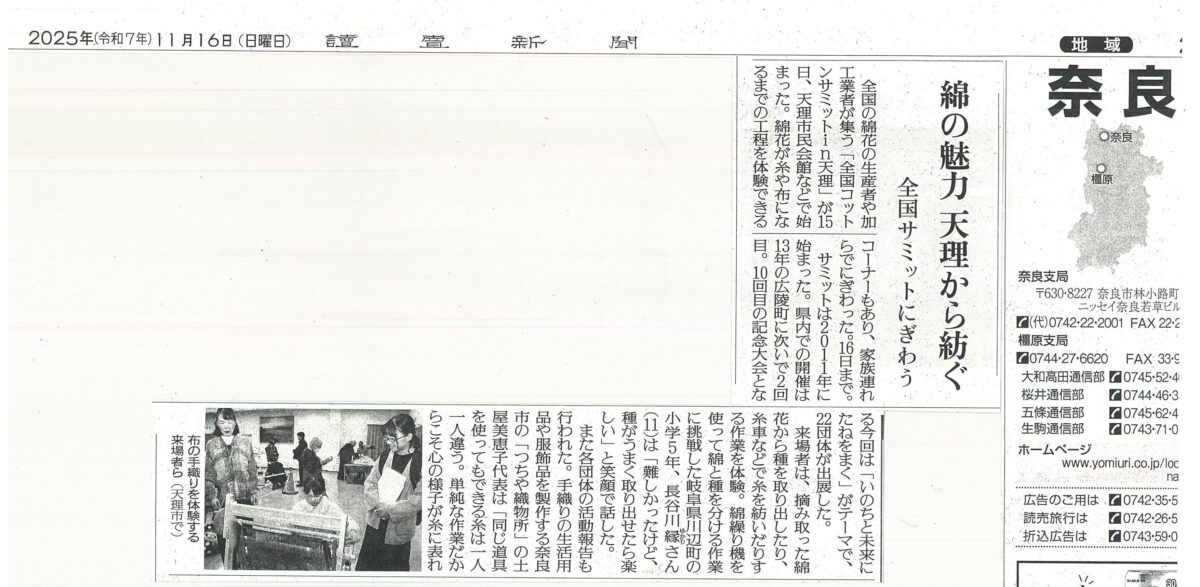 2025年(令和7年)11月16日(日曜日)
讀賣新聞
地域
奈良
奈良
橿原
奈良支局
〒630・8227 奈良市林小路町
ニッセイ奈良若草ビル
(代)0742・22・2001 FAX 22・2
橿原支局
0744・27・6620 FAX 33・9
大和高田通信部 0745・52・4
桜井通信部 0744・46・3
五條通信部 0745・62・4
生駒通信部 0743・71・0
ホームページ
www.yomiuri.co.jp/loc
na
広告のご用は 0742・35・5
読売旅行は 0742・26・5
折込広告は 0743・59・0
綿の魅力 天理から紡ぐ
全国サミットにぎわう
全国の綿花の生産者や加
工業者が集う「全国コット
ンサミットin天理」が15
日、天理市民会館などで始
まった。綿花が糸や布にな
るまでの工程を体験できる
コーナーもあり、家族連れ
らでにぎわった。16日まで。
サミットは2011年に
始まった。県内での開催は
13年の広陵町に次いで2回
目。10回目の記念大会とな
る今回は「いのちと未来に
たねをまく」がテーマで、
22団体が出展した。
来場者は、摘み取った綿
花から種を取り出したり、
糸車などで糸を紡いだりす
る作業を体験。綿繰り機を
使って綿と種を分ける作業
に挑戦した岐阜県川辺町の
小学5年、長谷川縁さん
(11)は「難しかったけど、
種がうまく取り出せたら楽
しい」と笑顔で話した。
また各団体の活動報告も
行われた。手織りの生活用
品や服飾品を製作する奈良
市の「つちや織物所」の土
屋美恵子代表は「同じ道具
を使ってもできる糸は一人
一人違う。単純な作業だか
らこそ心の様子が糸に表れ
布の手織りを体験する
来場者ら(天理市で)